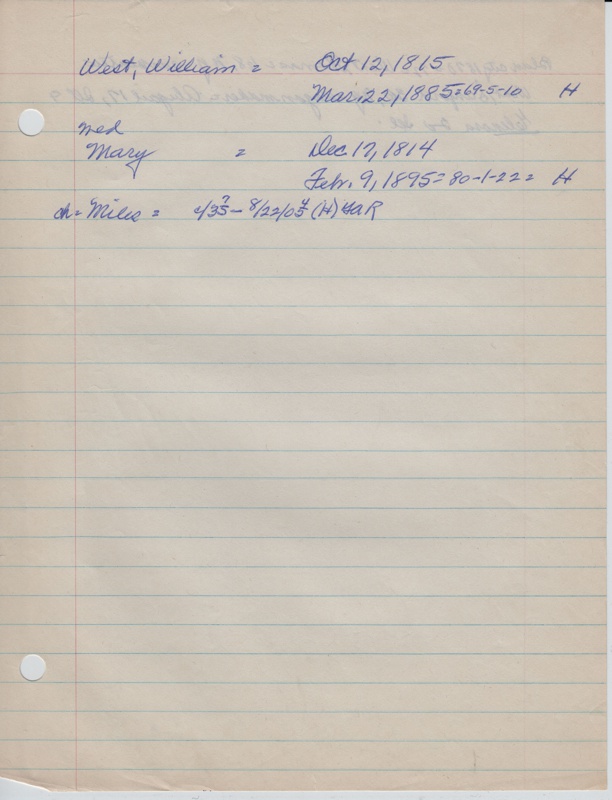 West, William = Oct 12, 1815
Mar. 22, 1885 = 69-5-10 H
wed
Mary = Dec. 17, 1814
Feb. 9, 1895 = 80-1-22 = H
ch = Miles = 8/22/05 (H) GAR